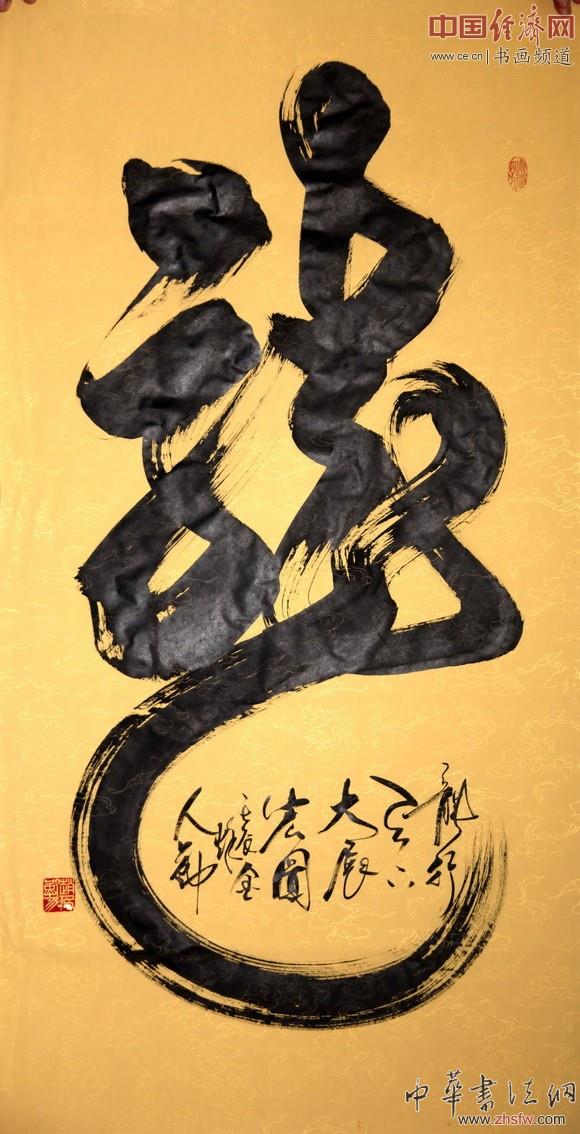 中国经济网
www.ce.cn|书画频道
龍
龍行
天下
大展
宏圖
人勤
中華書法網
www.zhsfw.com